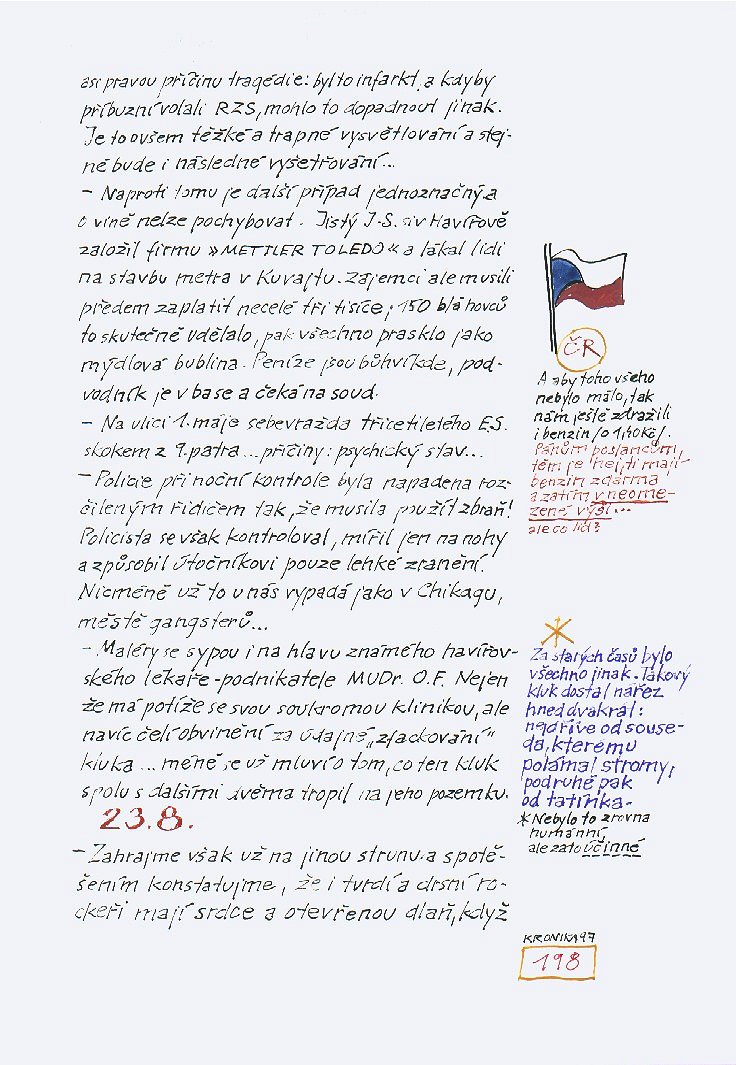 asi pravou příčinu tragédie: byl to infarkt, a kdyby
příbuzní volali RZS, mohlo to dopadnout jinak.
Je to ovšem těžké a trapné vysvětlování a stej-
né bude i následné vyšetřování...
– Naproti tomu je další případ jednoznačný a
o vině nelze pochybovat. Jistý J.S. si v Havířově
založil firmu »METTLER TOLEDO« a lákal lidi
na stavbu metra v Kuvajtu. Zájemci ale musili
předem zaplatit necelé tři tisíce; 150 bláhovců
to skutečně udělalo, pak všechno prasklo jako
mýdlová bublina. Peníze jsou bůhvíkde, pod-
vodník je v base a čeká na soud.
– Na ulici 1. máje sebevražda třicetiletého E.S.
skokem z 9. patra... příčiny: psychický stav...
– Policie při noční kontrole byla napadena roz-
číleným řidičem tak, že musila použít zbraň!
Policista se však kontroloval, mířil jen na nohy
a způsobil útočníkovi pouze lehké zranění.
Nicméně už to u nás vypadá jako v Chikagu,
městě gangsterů...
– Maléry se sypou i na hlavu známého havířov-
ského lékaře-podnikatele MUDr. O.F. Nejen
že má potíže se svou soukromou klinikou, ale
navíc čelí obvinění za údajné „zfackování"
kluka... méně se už mluví o tom, co ten kluk
spolu s dalšími dvěma tropil na jeho pozemku.
23.8.
– Zahrajme však už na jinou strunu a s potě-
šením konstatujme, že i tvrdí a drsní ro-
ckeři mají srdce a otevřenou dlaň, když
ČR
A aby toho všeho
nebylo málo, tak
nám ještě zdražili
i benzin /o 1,40 Kč/.
Pánům poslancům,
těm je hej, ti mají
benzin zdarma
a zatím v neome-
zené výši...
ale co lidi?
Za starých časů bylo
všechno jinak. Takový
kluk dostal nářez
hned dvakrát:
nejdříve od souse-
da, kterému
polámal stromy,
podruhé pak
od tatínka.
* Nebylo to zrovna
humánní,
ale zato účinné
KRONIKA 97
198